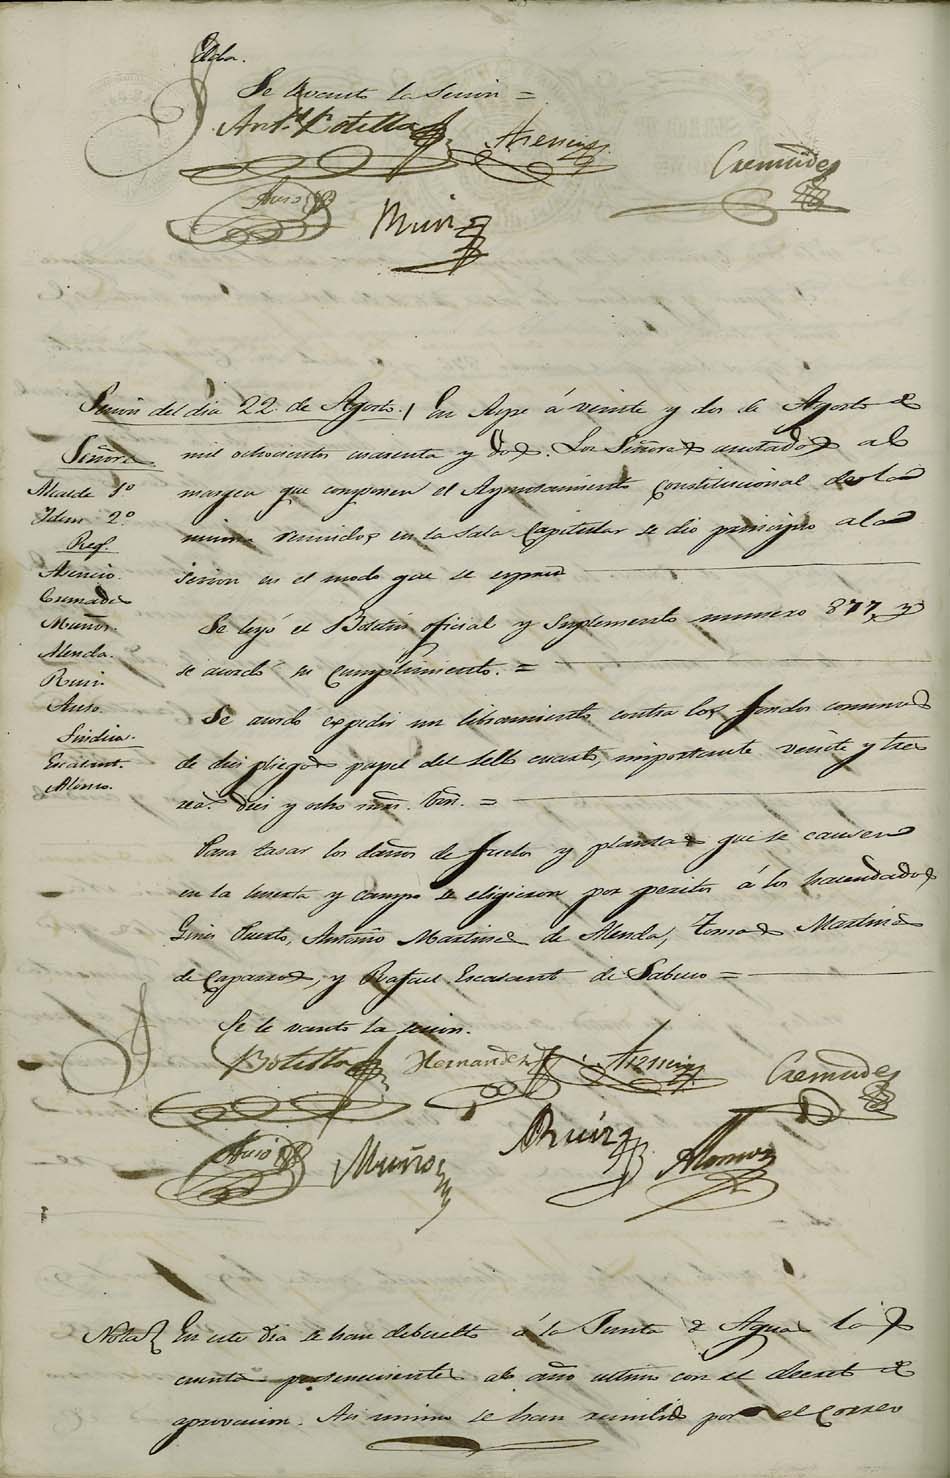 Elda.
Se levantó la sesion =
Ant.º Botella
Asencio
Cremades
Auso
Muñoz
Sesion del dia 22 de Agosto. En Aspe á veinte y dos de Agosto de
Señores
mil ochocientos cuarenta y dos. Los Señores anotados al
Alcalde 1º
margen que componen el Ayuntamiento Constitucional de la
Idem 2º
misma reunidos en la Sala Capitular se dio principio a la
Reg.
Asencio.
sesion en el modo que se espresa
Cremades
Muñoz.
Se leyó el Boletin oficial y Suplemento numero 877, y
Alenda.
se acordó su cumplimiento. =
Ruiz.
Auso.
Se acordo expedir un libramiento contra los fondos comunes
Sindicos.
de diez pliegos papel del sello cuarto, importante veinte y tres
Escalant.
Alonso.
rea.s diez y ocho mrs. vn. =
Para tasar los daños de frutos y plantas que se causen
en la huerta y campo se eligieron por peritos á los hacendados
Gines Puerto, Antonio Martinez de Alenda, Tomas Martinez
de Caparros, y Rafael Escalant de Sabuco =
Se levantó la sesion.
Botella
Hernandez
Asencio
Cremades
Auso
Muñoz
Ruiz
Alonso
Nota En este dia se han debuelto á la Junta de Aguas las
cuentas pertenecientes al año ultimo con el decreto de
aprovacion. Asi mismo se han remitido por el Correo